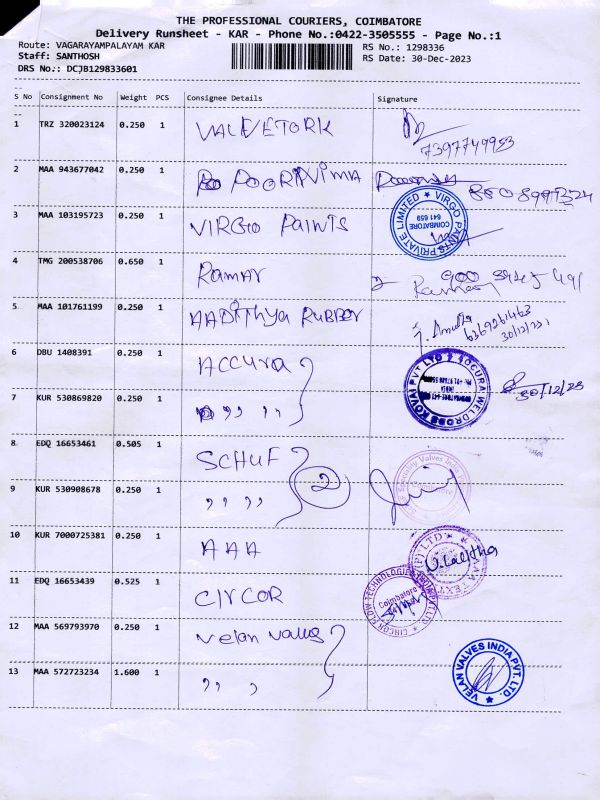 THE PROFESSIONAL COURIERS, COIMBATORE
Delivery Runsheet - KAR - Phone No.:0422-3505555 - Page No.:1
Route: VAGARAYAMPALAYAM KAR RS No.: 1298336
Staff: SANTHOSH RS Date: 30-Dec-2023
DRS No.: DCJB129833601
S No Consignment No Weight PCS Consignee Details Signature
1 TRZ 320023124 0.250 1 VALVETORK 7397749953
2 MAA 943677042 0.250 1 POORNIMA
3 MAA 103195723 0.250 1 VIRGO PAINTS
VIRGO PAINTS PRIVATE LIMITED ★ COIMBATORE 641 659
4 TMG 200538706 0.650 1 Ramar
5 MAA 101761199 0.250 1 AADITHYA RUBBER 6369261463
30/12/23
6 DBU 1408391 0.250 1 ACCURA
ACCURA WELDRODS KOVAI PVT LTD 30/12/23
7 KUR 530869820 0.250 1 ,, ,, ,,
8 EDQ 16653461 0.505 1 SCHUF
2
9 KUR 530908678 0.250 1 ,, ,, ,,
10 KUR 7000725381 0.250 1 AAA V. Lalitha
11 EDQ 16653439 0.525 1 CIRCOR
CIRCOR FLOW TECHNOLOGIES INDIA PVT LTD Coimbatore
12 MAA 569793970 0.250 1 Velan Valves
13 MAA 572723234 1.600 1 ,, , ,
VELAN VALVES INDIA PVT. LTD. ★